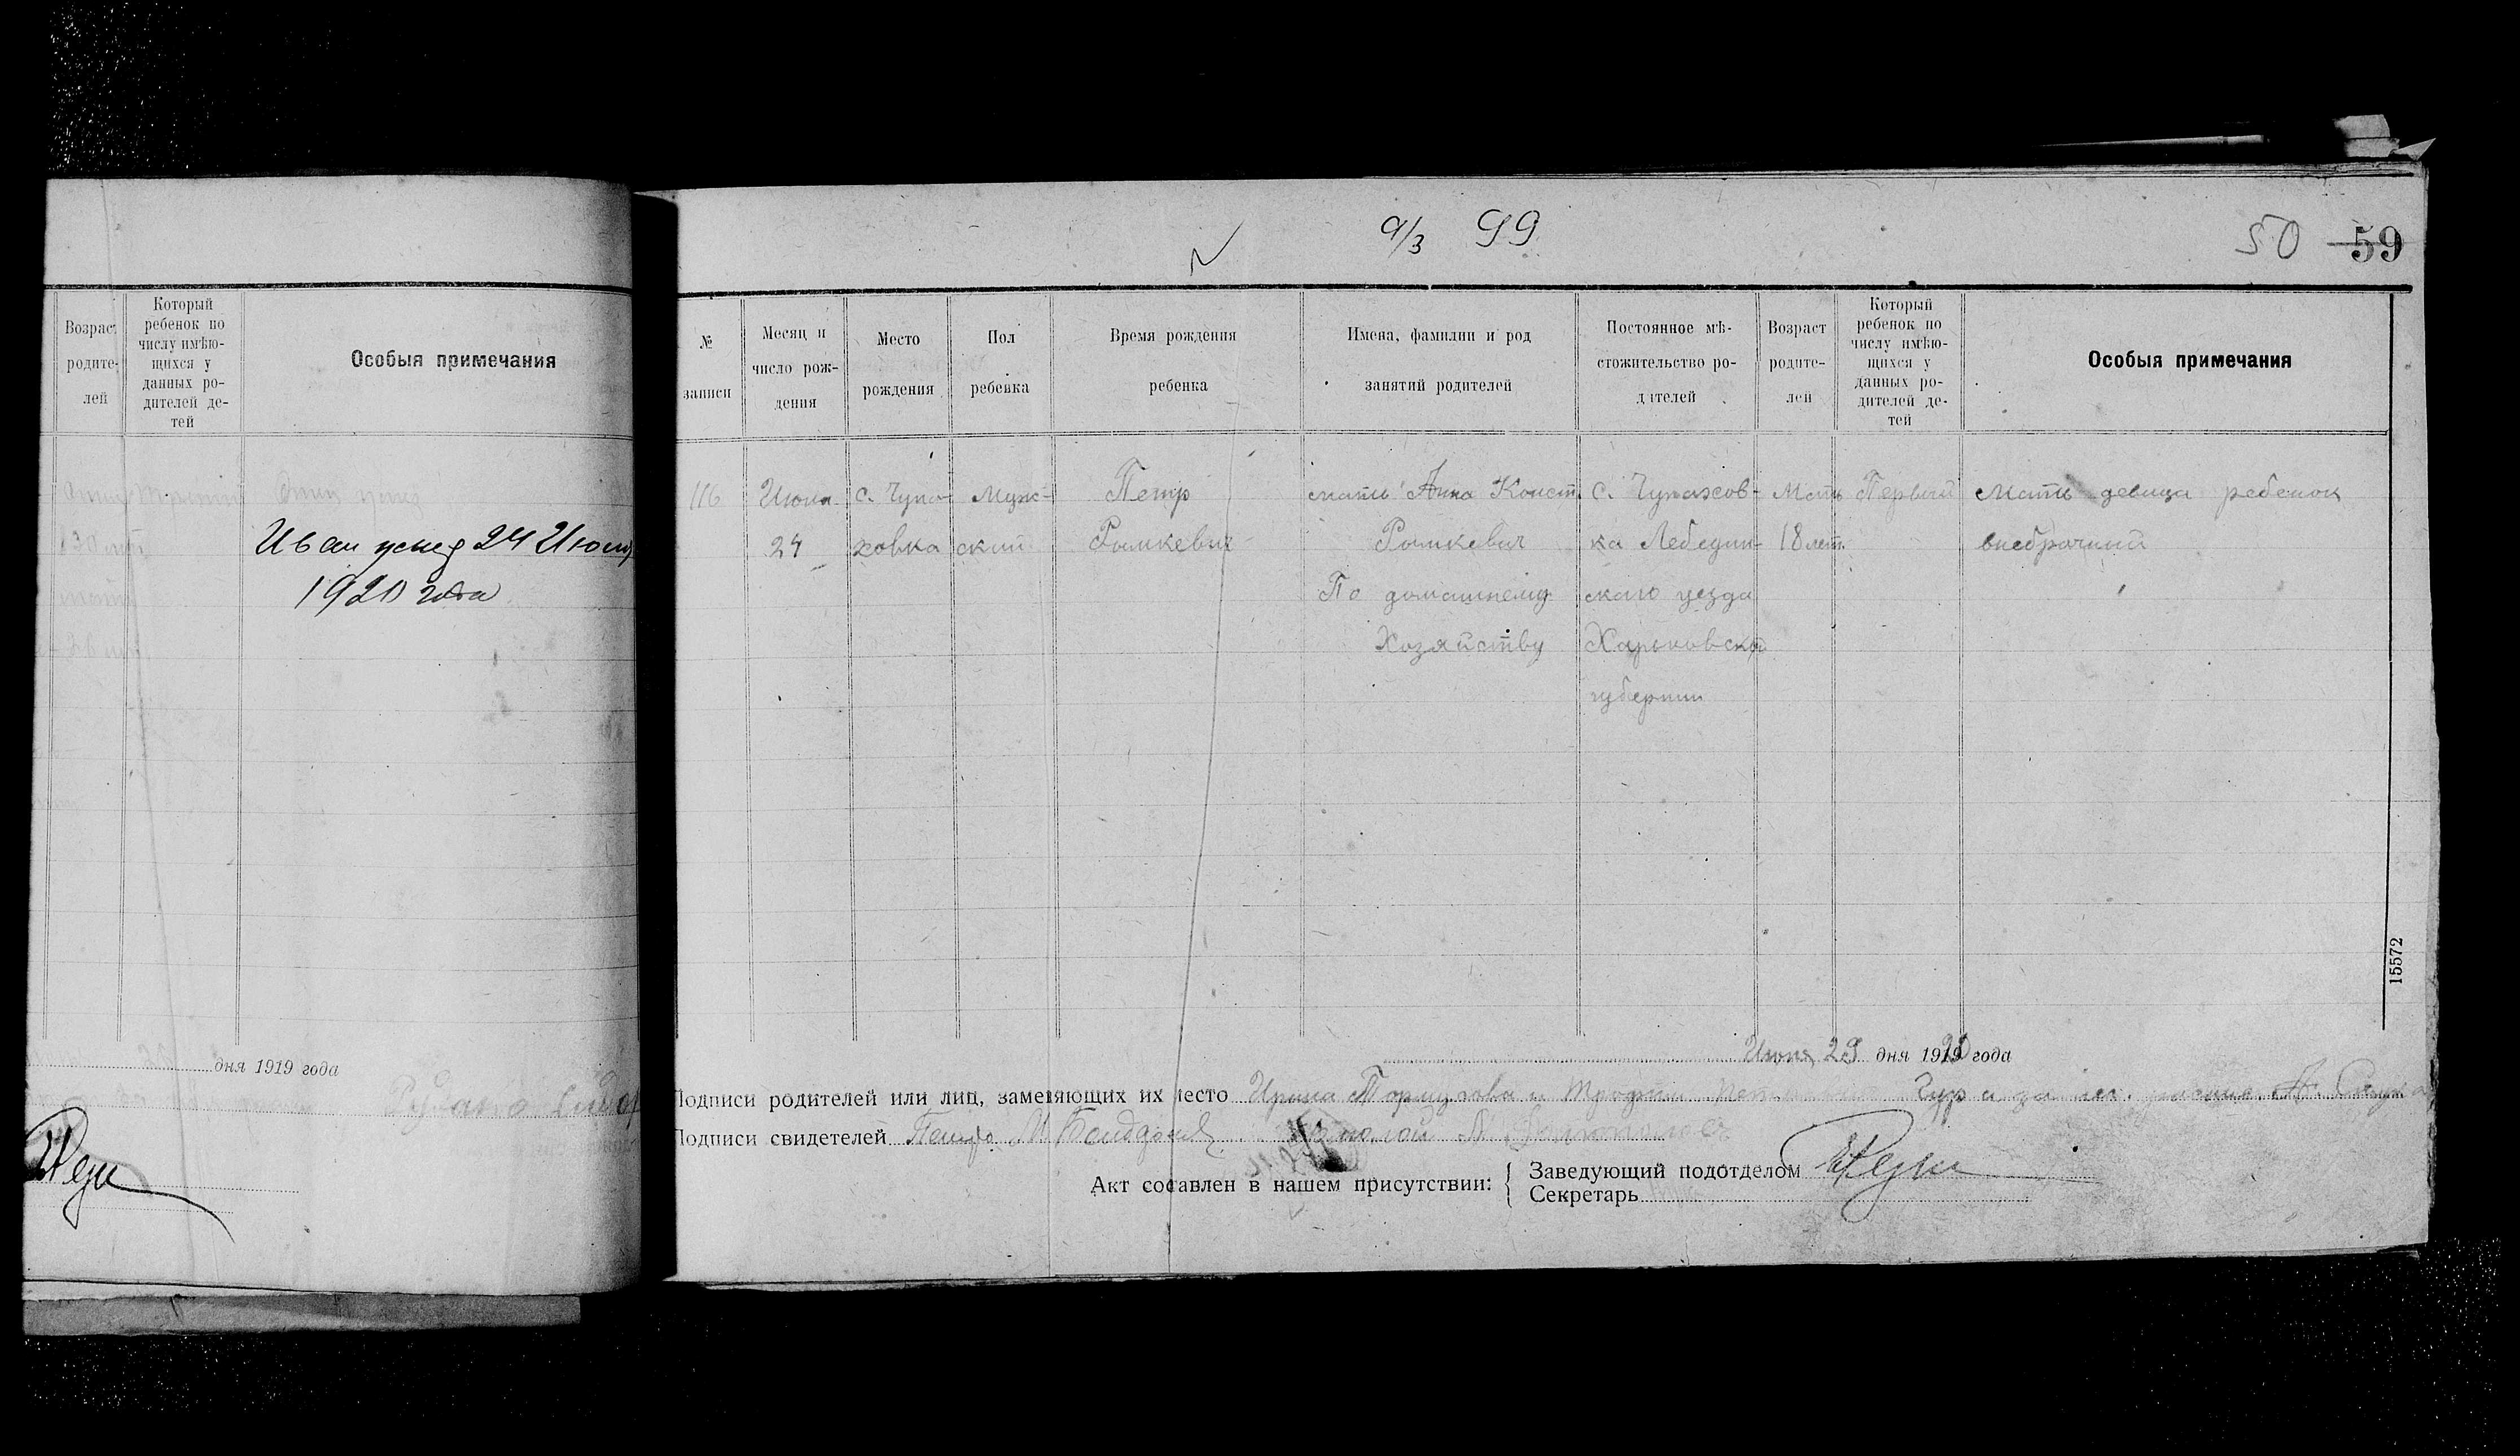 Возраст
родите-
лей
Который
ребенок по
числу имѣю-
щихся у
данных ро-
дителей де-
тей
Особыя примечания
Иван
24 Июня
1920 года
дня 1919 года
9/3 99
50 59
№
записи
Месяц и
число рож-
дения
Место
рождения
Пол
ребенка
Время рождения
ребенка
Имена, фамилии и род
занятий родителей
Постоянное мѣ-
стожительство ро-
дителей
Возраст
родите-
лей
Который
ребенок по
числу имѣю-
щихся у
данных ро-
дителей де-
тей
Особыя примечания
116
Июня
24
с. Чупа-
ховка
Муж-
ский
Петр
Ромкевич
мать Анна Конст.
Ромкевич
По домашнему
Хозяйству
с. Чупахов-
ка Лебедин-
скаго уезда
Харьковской
губернии
Мать
18 лет.
Первый
Мать девица ребенок
внебрачный
15572
Июня 29 дня 1920 года
Подписи родителей или лиц, заменяющих их место Ирина
Подписи свидетелей Петр
Акт составлен в нашем присутствии:
Заведующий подотделом
Секретарь